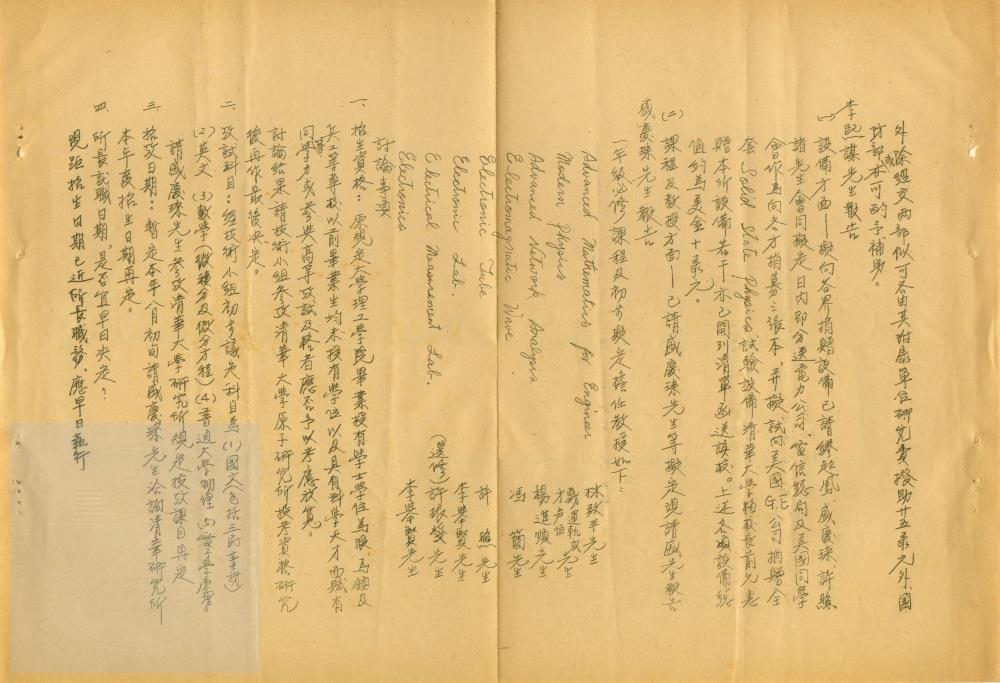 外除經交兩部似可各由其附屬單位研究費撥助廿五萬元外,國
防部亦可酌予補助。
李熙謀先生報告
(一)設備方面—擬向各界捐贈設備已請繆起鳳盛慶琜許照
諸先生會同擬定日內即分送電力公司電信總局及美國同學
會作為向各方捐募之張本,并擬試向美國G.E公司捐贈全
套Solid State Physics試驗設備清華大學梅校長前允惠
贈本所設備若干亦已開列清單函送該校。上述各項設備總
值約為美金十萬元。
(二)課程及教授方面—已請盛慶琜先生等擬定現請盛先生報告
盛慶琜先生報告
一年級必修課程及初步擬定擔任教授如下:
Advanced Mathematics for Engineer 林致平先生
Modern Physics 戴運軌或方聲恒先生
Advanced Network Analysis 楊進順先生
Electromagnetic Wave 馮簡先生
Electronic Tube 許照先生
Electronic Lab. 李舉賢先生
Electrical Measurement Lab. (選修)許振發先生
Electronics 李舉賢先生
討論事項
一、招生資格:原規定大學理工學院畢業授有學士學位為限,為顧及
兵工等專校以前畢業生均未授有學位以及具有科學天才而賦有
同等學力或參與高等攷試及格者應否予以考慮放寬。
討論結果,請技術小組參攷清華大學原子研究所投考資格研究
後再作最後決定。
二、攷試科目:經技術小組初步議定科目為(1)國文(包括三民主義)
(2)英文(3)數學(微積分及微分方程)(4)普通大學物理(5)電子學原理。
請盛慶琜先生參攷清華大學研究所規定投攷課目再定
三、招攷日期:暫定本年八月初旬請盛慶琜先生洽詢清華研究所
本年度招生日期再定。
四、所長就職日期,是否宜早日決定?
現距招生日期已近所長職務,應早日執行